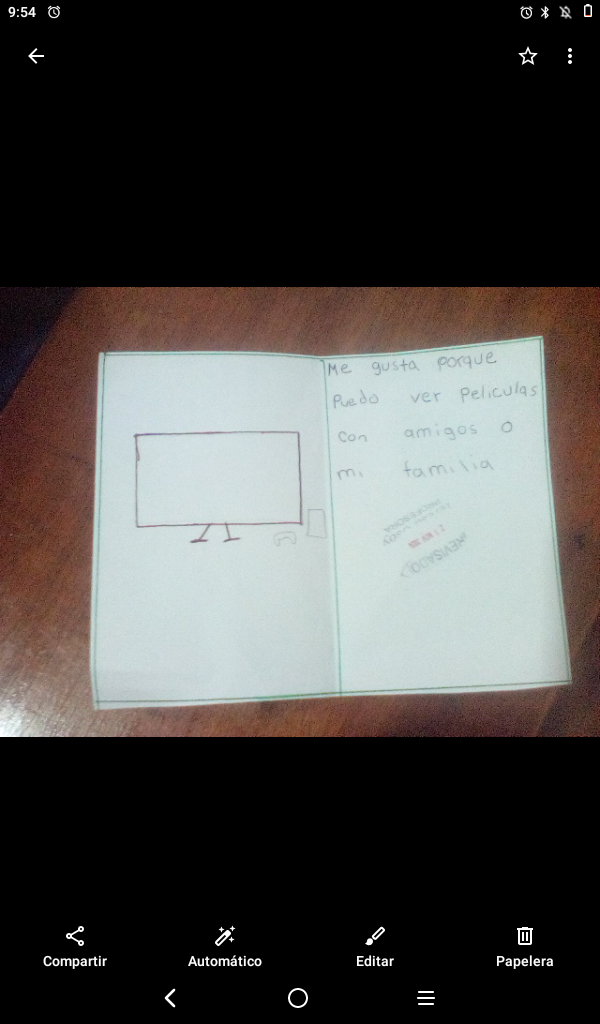 9:54
Me gusta porque
Puedo ver Peliculas
con amigos o
mi familia
PROFESORA
¡REVISADO!
Compartir
Automático
Editar
Papelera